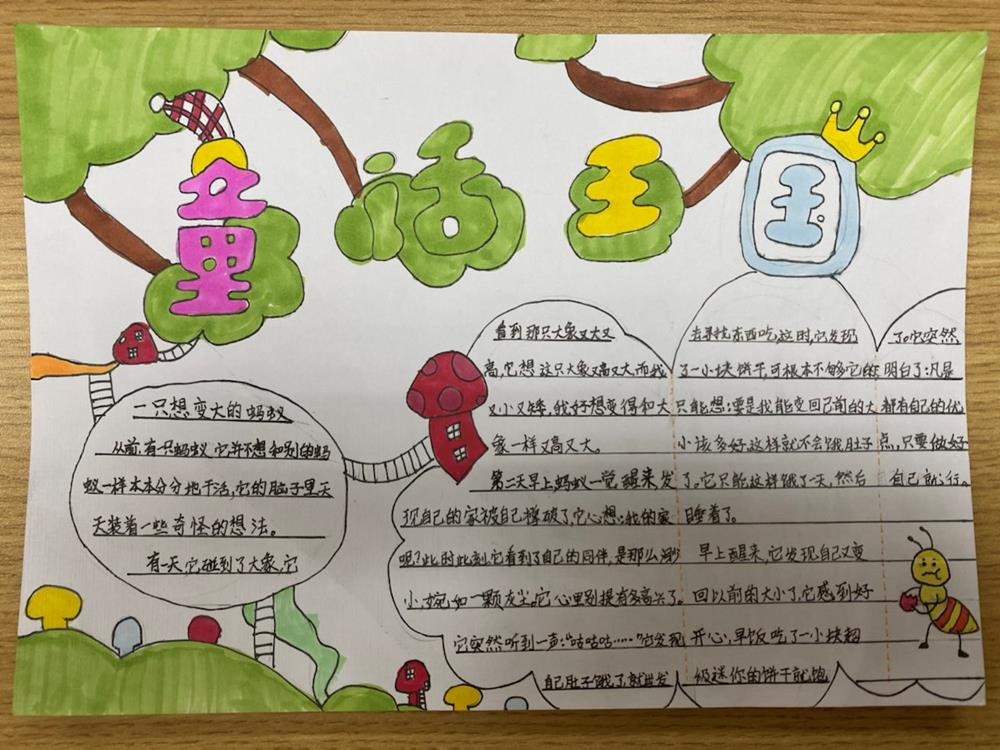 童话王国
一只想变大的蚂蚁
从前,有一只蚂蚁,它并不想和别的蚂
蚁一样本本分分地干活,它的脑子里天
天装着一些奇怪的想法。
有一天,它碰到了大象,它
看到那只大象又大又
高,它想:这只大象又高又大,而我
又小又矮,我好想变得和大
象一样又高又大。
第二天早上,蚂蚁一觉醒来,发
现自己的家被自己撑破了,它心想:我的家
呢?此时此刻,它看到了自己的同伴,是那么渺
小,宛如一颗灰尘。它心里别提有多高兴了。
它突然听到一声:“咕咕咕……”它发现
自己肚子饿了,就出发
去寻找东西吃,这时,它发现
了一小块饼干,可根本不够它吃
只能想:要是我能变回已前的大
小该多好,这样就不会饿肚子
了。它只能这样饿了一天,然后
睡着了。
早上醒来,它发现自己又变
回以前的大小了,它感到好
开心,早饭吃了一小块超
级迷你的饼干就饱
了。它突然
明白了:凡是
都有自己的优
点,只要做好
自己就行。